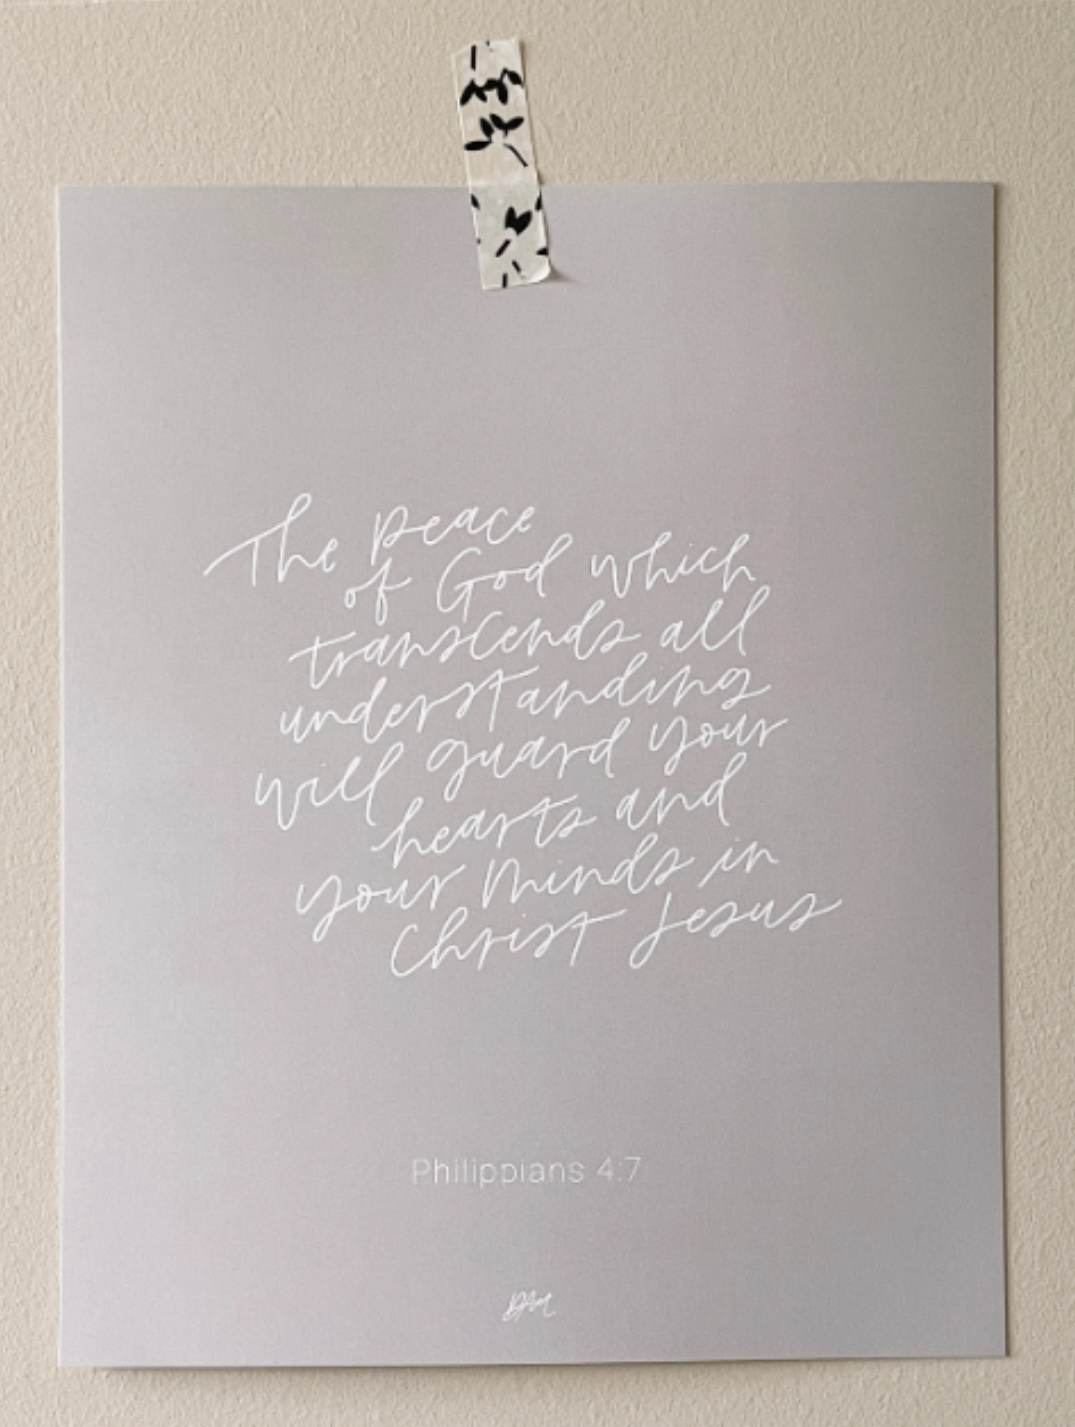 The peace
of God which
transcends all
understanding
will guard your
hearts and
your minds in
Christ Jesus
Philippians 4:7